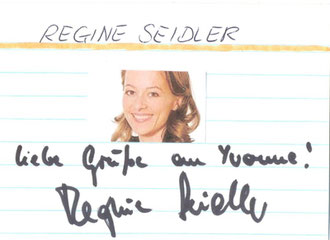 REGINE SEIDLER
liebe Grüße an Yvonne!
Regine Seidler